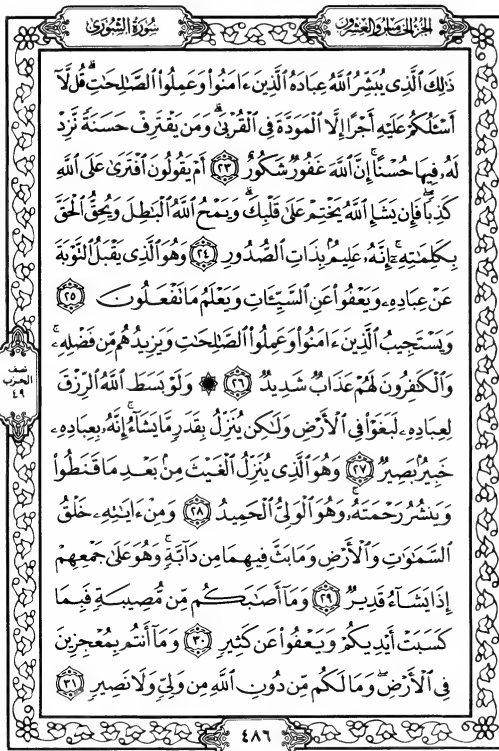 سُورَةُ الشُّورَىٰ
الجُزْءُ الخَامِسُ وَالعِشْرُونَ
ذَٰلِكَ الَّذِي يُبَشِّرُ اللَّهُ عِبَادَهُ الَّذِينَ ءَامَنُوا وَعَمِلُوا الصَّالِحَاتِ ۗ قُل لَّا
أَسْـَٔلُكُمْ عَلَيْهِ أَجْرًا إِلَّا الْمَوَدَّةَ فِي الْقُرْبَىٰ ۗ وَمَن يَقْتَرِفْ حَسَنَةً نَّزِدْ
لَهُۥ فِيهَا حُسْنًا ۚ إِنَّ اللَّهَ غَفُورٌ شَكُورٌ ٢٣ أَمْ يَقُولُونَ افْتَرَىٰ عَلَى اللَّهِ
كَذِبًا ۖ فَإِن يَشَإِ اللَّهُ يَخْتِمْ عَلَىٰ قَلْبِكَ ۗ وَيَمْحُ اللَّهُ الْبَٰطِلَ وَيُحِقُّ الْحَقَّ
بِكَلِمَٰتِهِۦٓ ۚ إِنَّهُۥ عَلِيمٌۢ بِذَاتِ الصُّدُورِ ٢٤ وَهُوَ الَّذِي يَقْبَلُ التَّوْبَةَ
عَنْ عِبَادِهِۦ وَيَعْفُوا عَنِ السَّيِّـَٔاتِ وَيَعْلَمُ مَا تَفْعَلُونَ ٢٥
وَيَسْتَجِيبُ الَّذِينَ ءَامَنُوا وَعَمِلُوا الصَّٰلِحَٰتِ وَيَزِيدُهُم مِّن فَضْلِهِۦ ۚ
وَالْكَٰفِرُونَ لَهُمْ عَذَابٌ شَدِيدٌ ٢٦ ۞ وَلَوْ بَسَطَ اللَّهُ الرِّزْقَ
لِعِبَادِهِۦ لَبَغَوْا فِي الْأَرْضِ وَلَٰكِن يُنَزِّلُ بِقَدَرٍ مَّا يَشَآءُ ۚ إِنَّهُۥ بِعِبَادِهِۦ
خَبِيرٌۢ بَصِيرٌ ٢٧ وَهُوَ الَّذِي يُنَزِّلُ الْغَيْثَ مِنۢ بَعْدِ مَا قَنَطُوا
وَيَنشُرُ رَحْمَتَهُۥ ۚ وَهُوَ الْوَلِيُّ الْحَمِيدُ ٢٨ وَمِنْ ءَايَٰتِهِۦ خَلْقُ
السَّمَٰوَٰتِ وَالْأَرْضِ وَمَا بَثَّ فِيهِمَا مِن دَآبَّةٍ ۚ وَهُوَ عَلَىٰ جَمْعِهِمْ
إِذَا يَشَآءُ قَدِيرٌ ٢٩ وَمَآ أَصَٰبَكُم مِّن مُّصِيبَةٍ فَبِمَا
كَسَبَتْ أَيْدِيكُمْ وَيَعْفُوا عَن كَثِيرٍ ٣٠ وَمَآ أَنتُم بِمُعْجِزِينَ
فِي الْأَرْضِ ۖ وَمَا لَكُم مِّن دُونِ اللَّهِ مِن وَلِيٍّ وَلَا نَصِيرٍ ٣١
نصف
الحزب
٤٩
٤٨٦